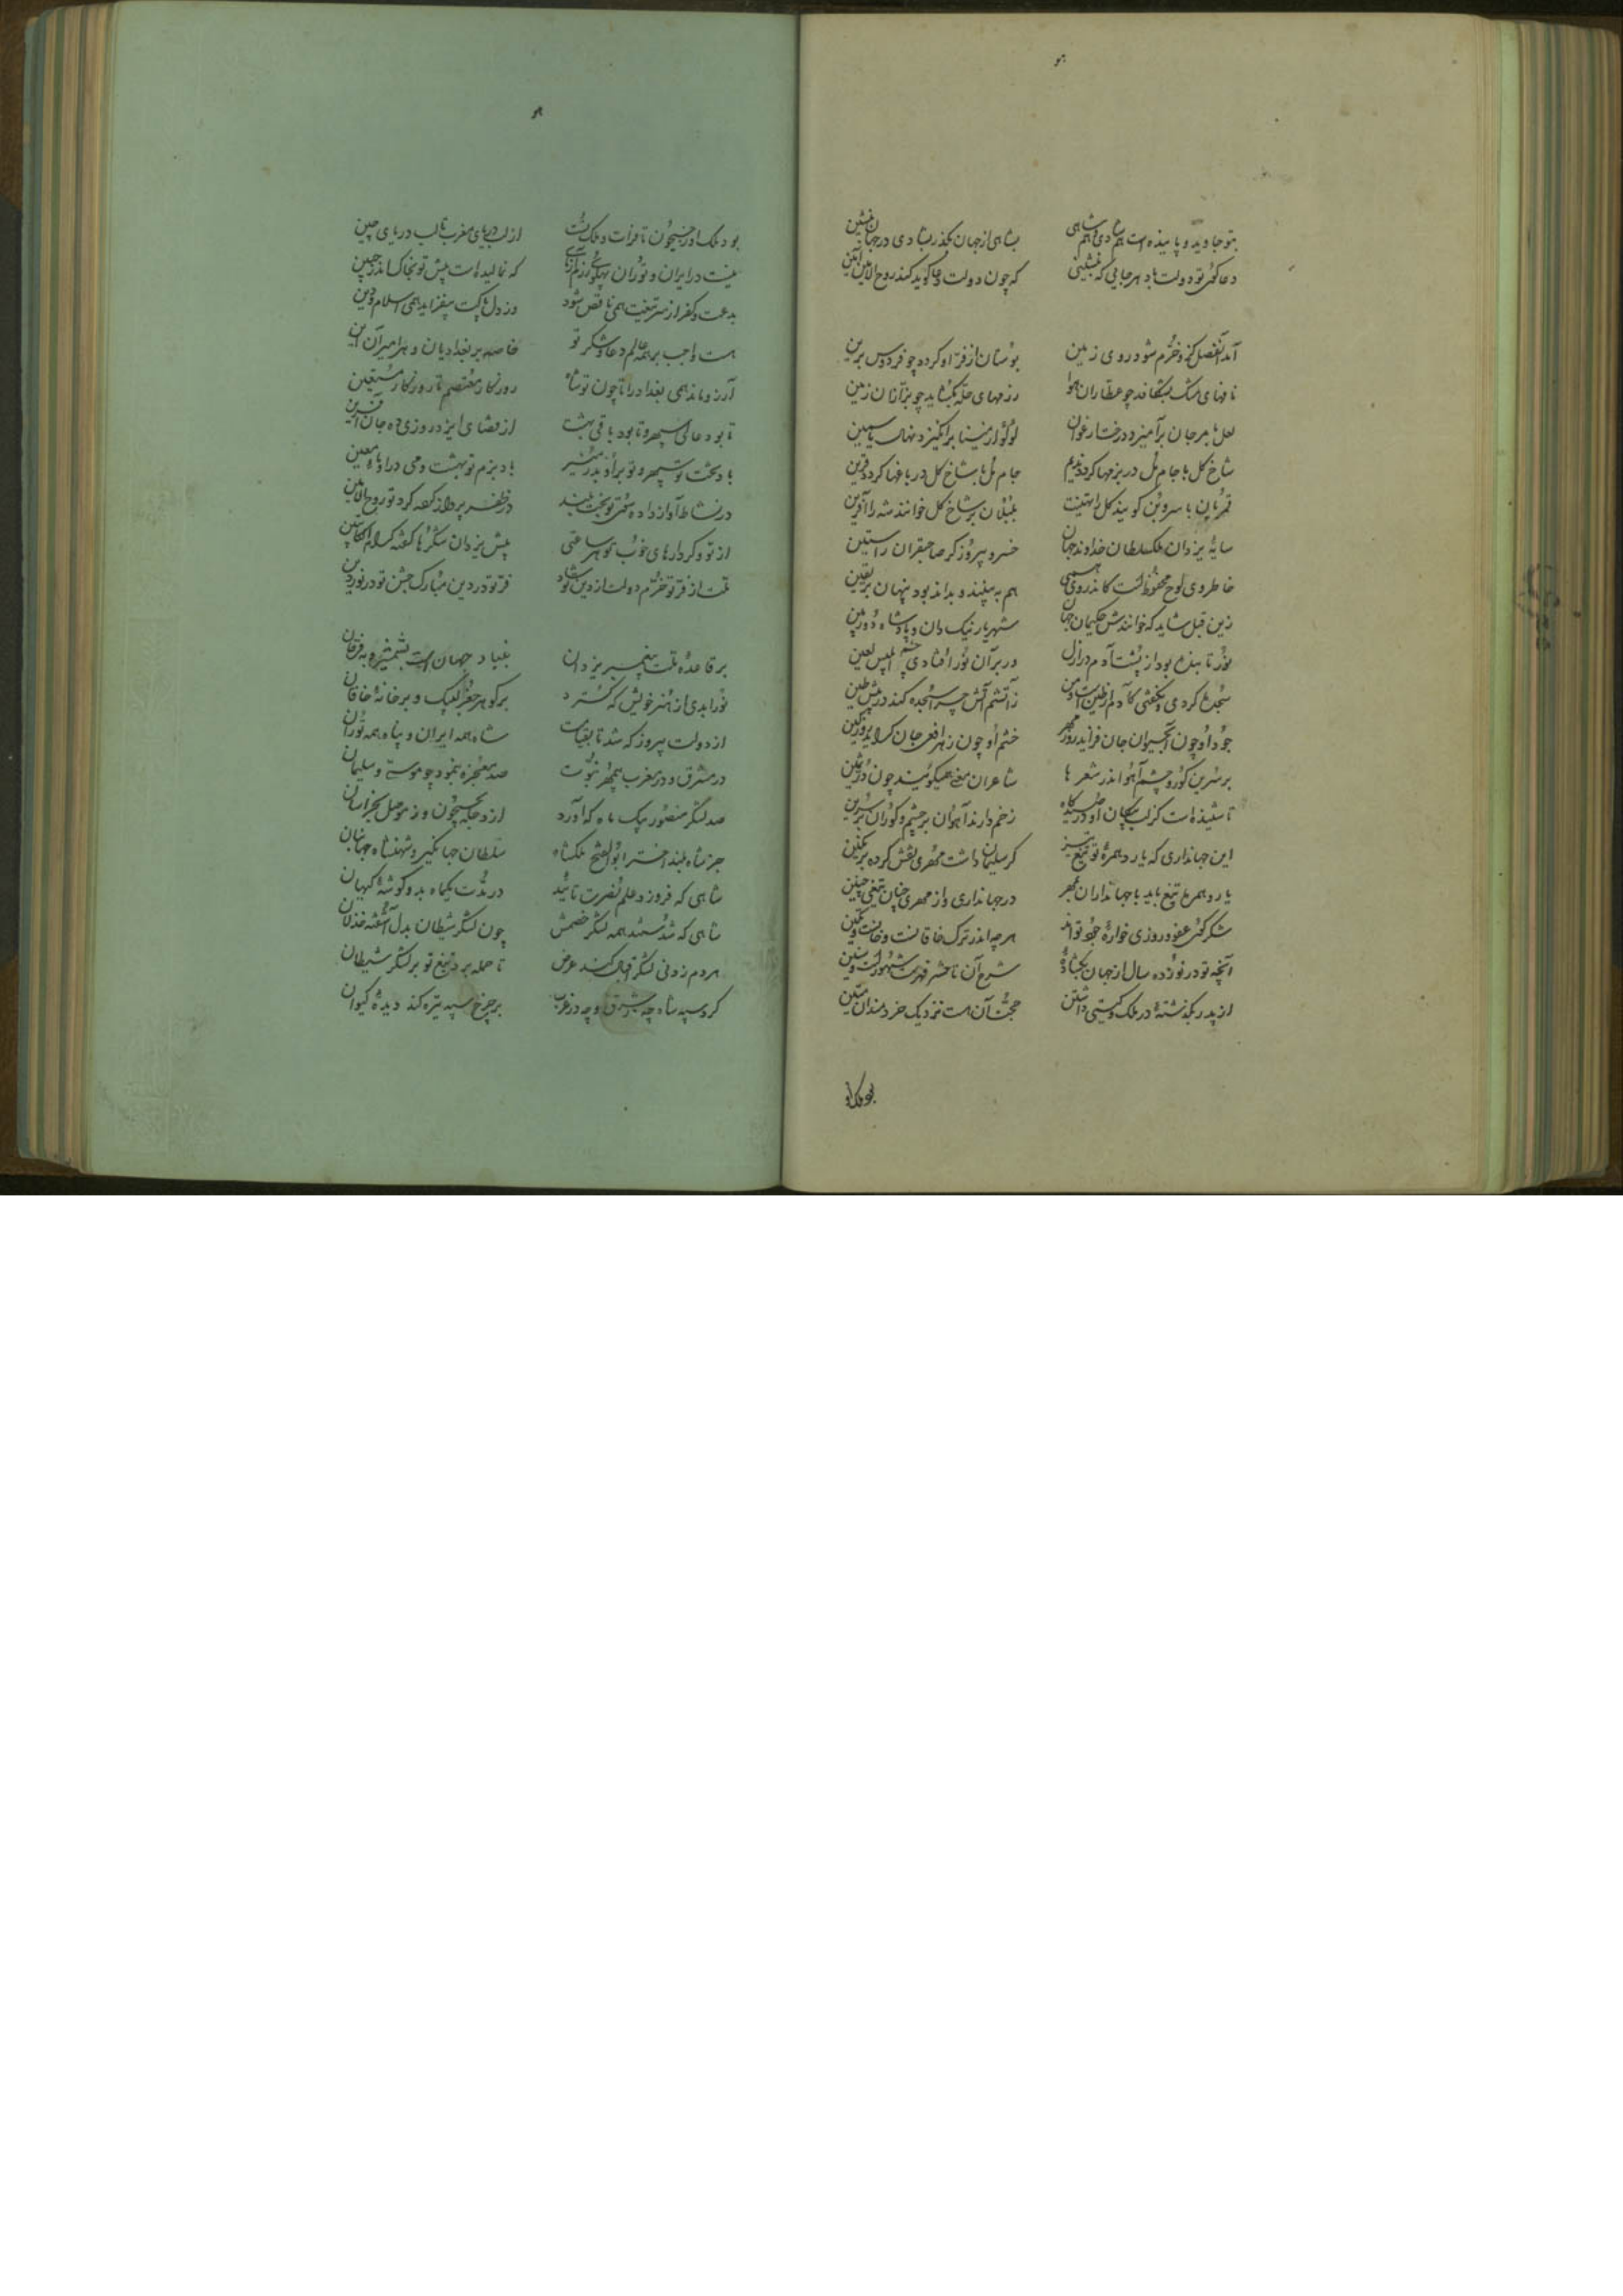 هو
بتو جاوید و پاینده است هم شادی و هم شاهی بشاهی از جهان مگذر بشادی در جهان بنشین
دعا گوی تو دولت باد هر جایی که بنشینی که چون دولت دعا گوید کند روح الامین آمین
آمد آن فصلی کزو خرم شود روی زمین بوستان از فر او گردد چو فردوس برین
نافهای مشک بشکافد چو عطاران هوا رزمهای حله بگشاید چو بزازان زمین
لعل با مرجان برآمیزد درخت ارغوان لولو از مینا برانگیزد نهال یاسمین
شاخ گل با جام مل در بزمها گردد ندیم جام مل با شاخ گل در باغها گردد قرین
قمریان با سرو بن گویند گل را تهنیت بلبلان بر شاخ گل خوانند شه را آفرین
سایه یزدان ملک سلطان خداوند جهان خسرو پیروزگر صاحبقران راستین
خاطر وی لوح محفوظ است کاندر وی همی هم ببیند و بداند بود پنهان بر یقین
زین قبل شاید که خوانندش حکیمان جهان شهریار نیک دان و پادشاه دوربین
نور تابنده بود از پشت آدم در ازل ور بر آن نور افتادی چشم ابلیس لعین
سجدها کردی و نگفتی کآدم از طین است و من ز آتشم آتش چرا سجده کند در پیش طین
جود او چون آب حیوان جان فزاید روز مهر خشم او چون زهر افعی جان گزاید روز کین
بر سرین گور و چشم آهو اندر شعرها شاعران معنی همیگویند چون در ثمین
تا شنیدست کز لب پیکان او در صیدگاه زخم دارند آهوان بر چشم و گوران بر سرین
این جهانداری که یار و همره تو تیغ تیز گر سلیمان داشت مهری نقش کرده بر نگین
یار و همره تیغ باید با جهانداران بمهر در جهانداری و از مهری چنان تیغی چنین
شکر گوی عفو و روزی خواره جود تواند هر چه اندر ترک خاقانست و خانست و تکین
آنچه تو در نوزده سال از جهان بگشادهٔ شرح آن تا حشر فهرست شهور است و سنین
از پدر بگذشتهٔ در ملک و گیتی داشتن حجت آن هست نزدیک خردمندان متین
بود ملک او
هو
بود ملک او ز جیحون تا فرات و ملک تست از لب دریای مغرب تا لب دریای چین
نیست در ایران و توران پهلوی رزم آزمای که نمالیدست پیش تو بخاک اندر جبین
بدعت و کفر از سر تیغت همی ناقص شود وز دل پاکت بیفزاید همی اسلام و دین
هست واجب بر همه عالم دعا و شکر تو خاصه بر بغدادیان و بر امیرالمومنین
آرزو ماند همی بغداد را تا چون تو شاه روزگار معتصم تا روزگار مستعین
تا بود عالی سپهر و تا بود باقی بهشت از قضای ایزد روزی ده جان آفرین
باد تخت تو سپهر و تو بر او بدر منیر باد بزم تو بهشت و می در او ماء معین
در نشاط آواز داده سوی تو بخت بلند در ظفر پرواز کرده گرد تو روح الامین
از تو و کردارهای خوب تو هر ساعتی پیش یزدان شکرها گفته کرام الکاتبین
ملت از فر تو خرم دولت از دین تو شاد فر تو در دین مبارک جشن تو در فرودین
بر قاعده ملت پیغمبر یزدان بنیاد جهان است بشمشیر و به فرقان
نور ابدی از هنر خویش که گسترد بر گوهر جغرالبک و بر خانهٔ خاقان
از دولت پیروز که شد تا بقیامت شاه همه ایران و پناه همه توران
در مشرق و در مغرب بی مهر نبوت صد معجزه بنمود چو موسی و سلیمان
صد لشکر منصور بیک ماه که آورد از دجله بجیحون و ز موصل بخراسان
جز شاه بلند اختر ابوالفتح ملکشاه سلطان جهانگیر و شهنشاه جهانبان
شاهی که فروزد علم نصرت تائید در مدت یکماه بدو گوشهٔ گیهان
شاهی که شدستند همه لشکر خصمش چون لشکر شیطان بدل آشفته خذلان
هر دم زدنی لشکر اقبال کند عرض تا حمله برد تیغ تو بر لشکر شیطان
گرد سپه شاه چه در شرق و چه در غرب بر چرخ سپه تیره کند دیده کیوان